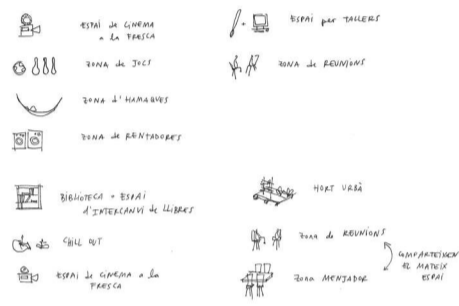 ESPAI de CINEMA
a la FRESCA
ZONA de JOCS
ZONA d'HAMAQUES
ZONA de RENTADORES
BIBLIOTECA + ESPAI
d'INTERCANVI de LLIBRES
CHILL OUT
ESPAI de CINEMA a la
FRESCA
ESPAI per TALLERS
ZONA de REUNIONS
HORT URBÀ
ZONA de REUNIONS
COMPARTEIXEN
EL MATEIX
ESPAI
ZONA MENJADOR